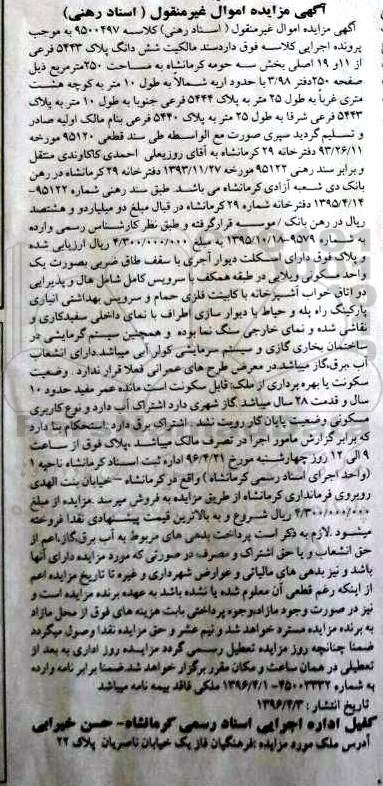 آگهی مزایده اموال غیرمنقول ( اسناد رهنی)
آگهی مزایده اموال غیرمنقول ( اسناد رهنی) کلاسه ۹۵۰۰۴۹۷ به موجب
پرونده اجرایی کلاسه فوق داردسند مالکیت شش دانگ پلاک ۵۴۴۳ فرعی
از ۱۱و ۱۹ اصلی بخش سه حومه کرمانشاه به مساحت ۲۵۰مترمربع ذیل
صفحه ۲۵۰دفتر ۳/۹۸ با حدود اربه شمالا به طول ۱۰ متر به کوچه هشت
متری غربا به طول ۲۵ متر به پلاک ۵۴۴۴ فرعی جنوبا به طول ۱۰ متر به پلاک
۵۴۴۳ فرعی شرقا به طول ۲۵ متر به پلاک ۵۴۴۰ فرعی بنام مالک اولیه صادر
و تسلیم گردید سپری صورت مع الواسطه طی سند قطعی ۹۵۱۲۰ مورخه
۹۳/۲۶/۱۱ دفترخانه ۲۹ کرمانشاه به آقای روزیعلی احمدی کاکاوندی منتقل
و برابر سند رهنی ۹۵۱۲۲ مورخه ۱۳۹۳/۱۱/۲۷ دفترخانه ۲۹ کرمانشاه در رهن
بانک دی شعبه آزادی کرمانشاه می باشد. طبق سند رهنی شماره ۹۵۱۲۲–
۱۳۹۵/۴/۱۴ دفترخانه شماره ۲۹ کرمانشاه در قبال مبلغ دو میلیاردو و هشتصد
ریال در رهن بانک / موسسه قرارگرفته و طبق نظر کارشناس رسمی وارده
به شماره ۹۵۷۹–۱۳۹۵/۱۰/۱۸ به مبلغ ۴/۳۰۰/۰۰۰/۰۰۰ ریال ارزیابی شده
و پلاک فوق دارای اسکلت دیوار آجری با سقف طاق ضربی بصورت یک
واحد مسکونی ویلایی در طبقه همکف با سرویس کامل شامل هال و پذیرایی
دو اتاق خواب آشپزخانه با کابینت فلزی حمام و سرویس بهداشتی انباری
پارکینگ راه پله و حیاط با دیوار سازی اطراف با نمای داخلی سفیدکاری و
نقاشی شده و نمای خارجی سنگ نما بوده و همچنین سیستم گرمایشی در
ساختمان بخاری گازی و سیستم سرمایشی کولر آبی میباشد.دارای انشعاب
آب ،برق،گاز میباشد.در معرض طرح های عمرانی فعلا قرار ندارد . وضعیت
سکونت یا بهره برداری از ملک: قابل سکونت است مانده عمر مفید حدود ۱۰
سال و قدمت ۲۸ سال میباشد.گاز شهری دارد اشتراک آب دارد و نوع کاربری
مسکونی وضعیت پایان کار رویت نشد . اشتراک برق دارد .استحکام بنا دارد
که برابر گزارش مامور اجرا در تصرف مالک میباشد .پلاک فوق از ساعت
۹ الی ۱۲ روز چهارشنبه مورخ ۹۶/۴/۲۱ اداره ثبت اسناد کرمانشاه ناحیه ۱
(واحد اجرای اسناد رسمی کرمانشاه ) واقع در کرمانشاه – خیابان بنت الهدی
روبروی فرمانداری کرمانشاه از طریق مزایده به فروش میرسد .مزایده از مبلغ
۴/۳۰۰/۰۰۰/۰۰۰ ریال شروع و به بالاترین قیمت پیشنهادی نقدا فروخته
میشود .لازم به ذکر است پرداخت بدهی های مربوط به آب برق،گاز،اعم از
حق انشعاب و یا حق اشتراک و مصرف در صورتی که مورد مزایده دارای آنها
باشد و نیز بدهی های مالیاتی و عوارض شهرداری و غیره تا تاریخ مزایده اعم
از اینکه رغم قطعی آن معلوم شده یا نشده باشد به عهده برنده مزایده است و
نیز در صورت وجود مازاد،وجوه پرداختی بابت هزینه های فوق از محل مازاد
به برنده مزایده مسترد خواهد شد و نیم عشر و حق مزایده نقدا وصول میگردد
ضمنا چنانچه روز مزایده تعطیل رسمی گردد مزایده روز اداری به بعد از
تعطیلی در همان ساعت و مکان مقرر برگزار خواهد شد.ضمنا برابر نامه وارده
به شماره ۴۵۰۰۳۳۳۲–۱۳۹۶/۴/۱ ملکی فاقد بیمه نامه میباشد
تاریخ انتشار : ۱۳۹۶/۴/۳
کفیل اداره اجرایی اسناد رسمی کرمانشاه– حسن خیرایی
آدرس ملک مورد مزایده :فرهنگیان فاز یک خیابان ناصریان پلاک ۲۲